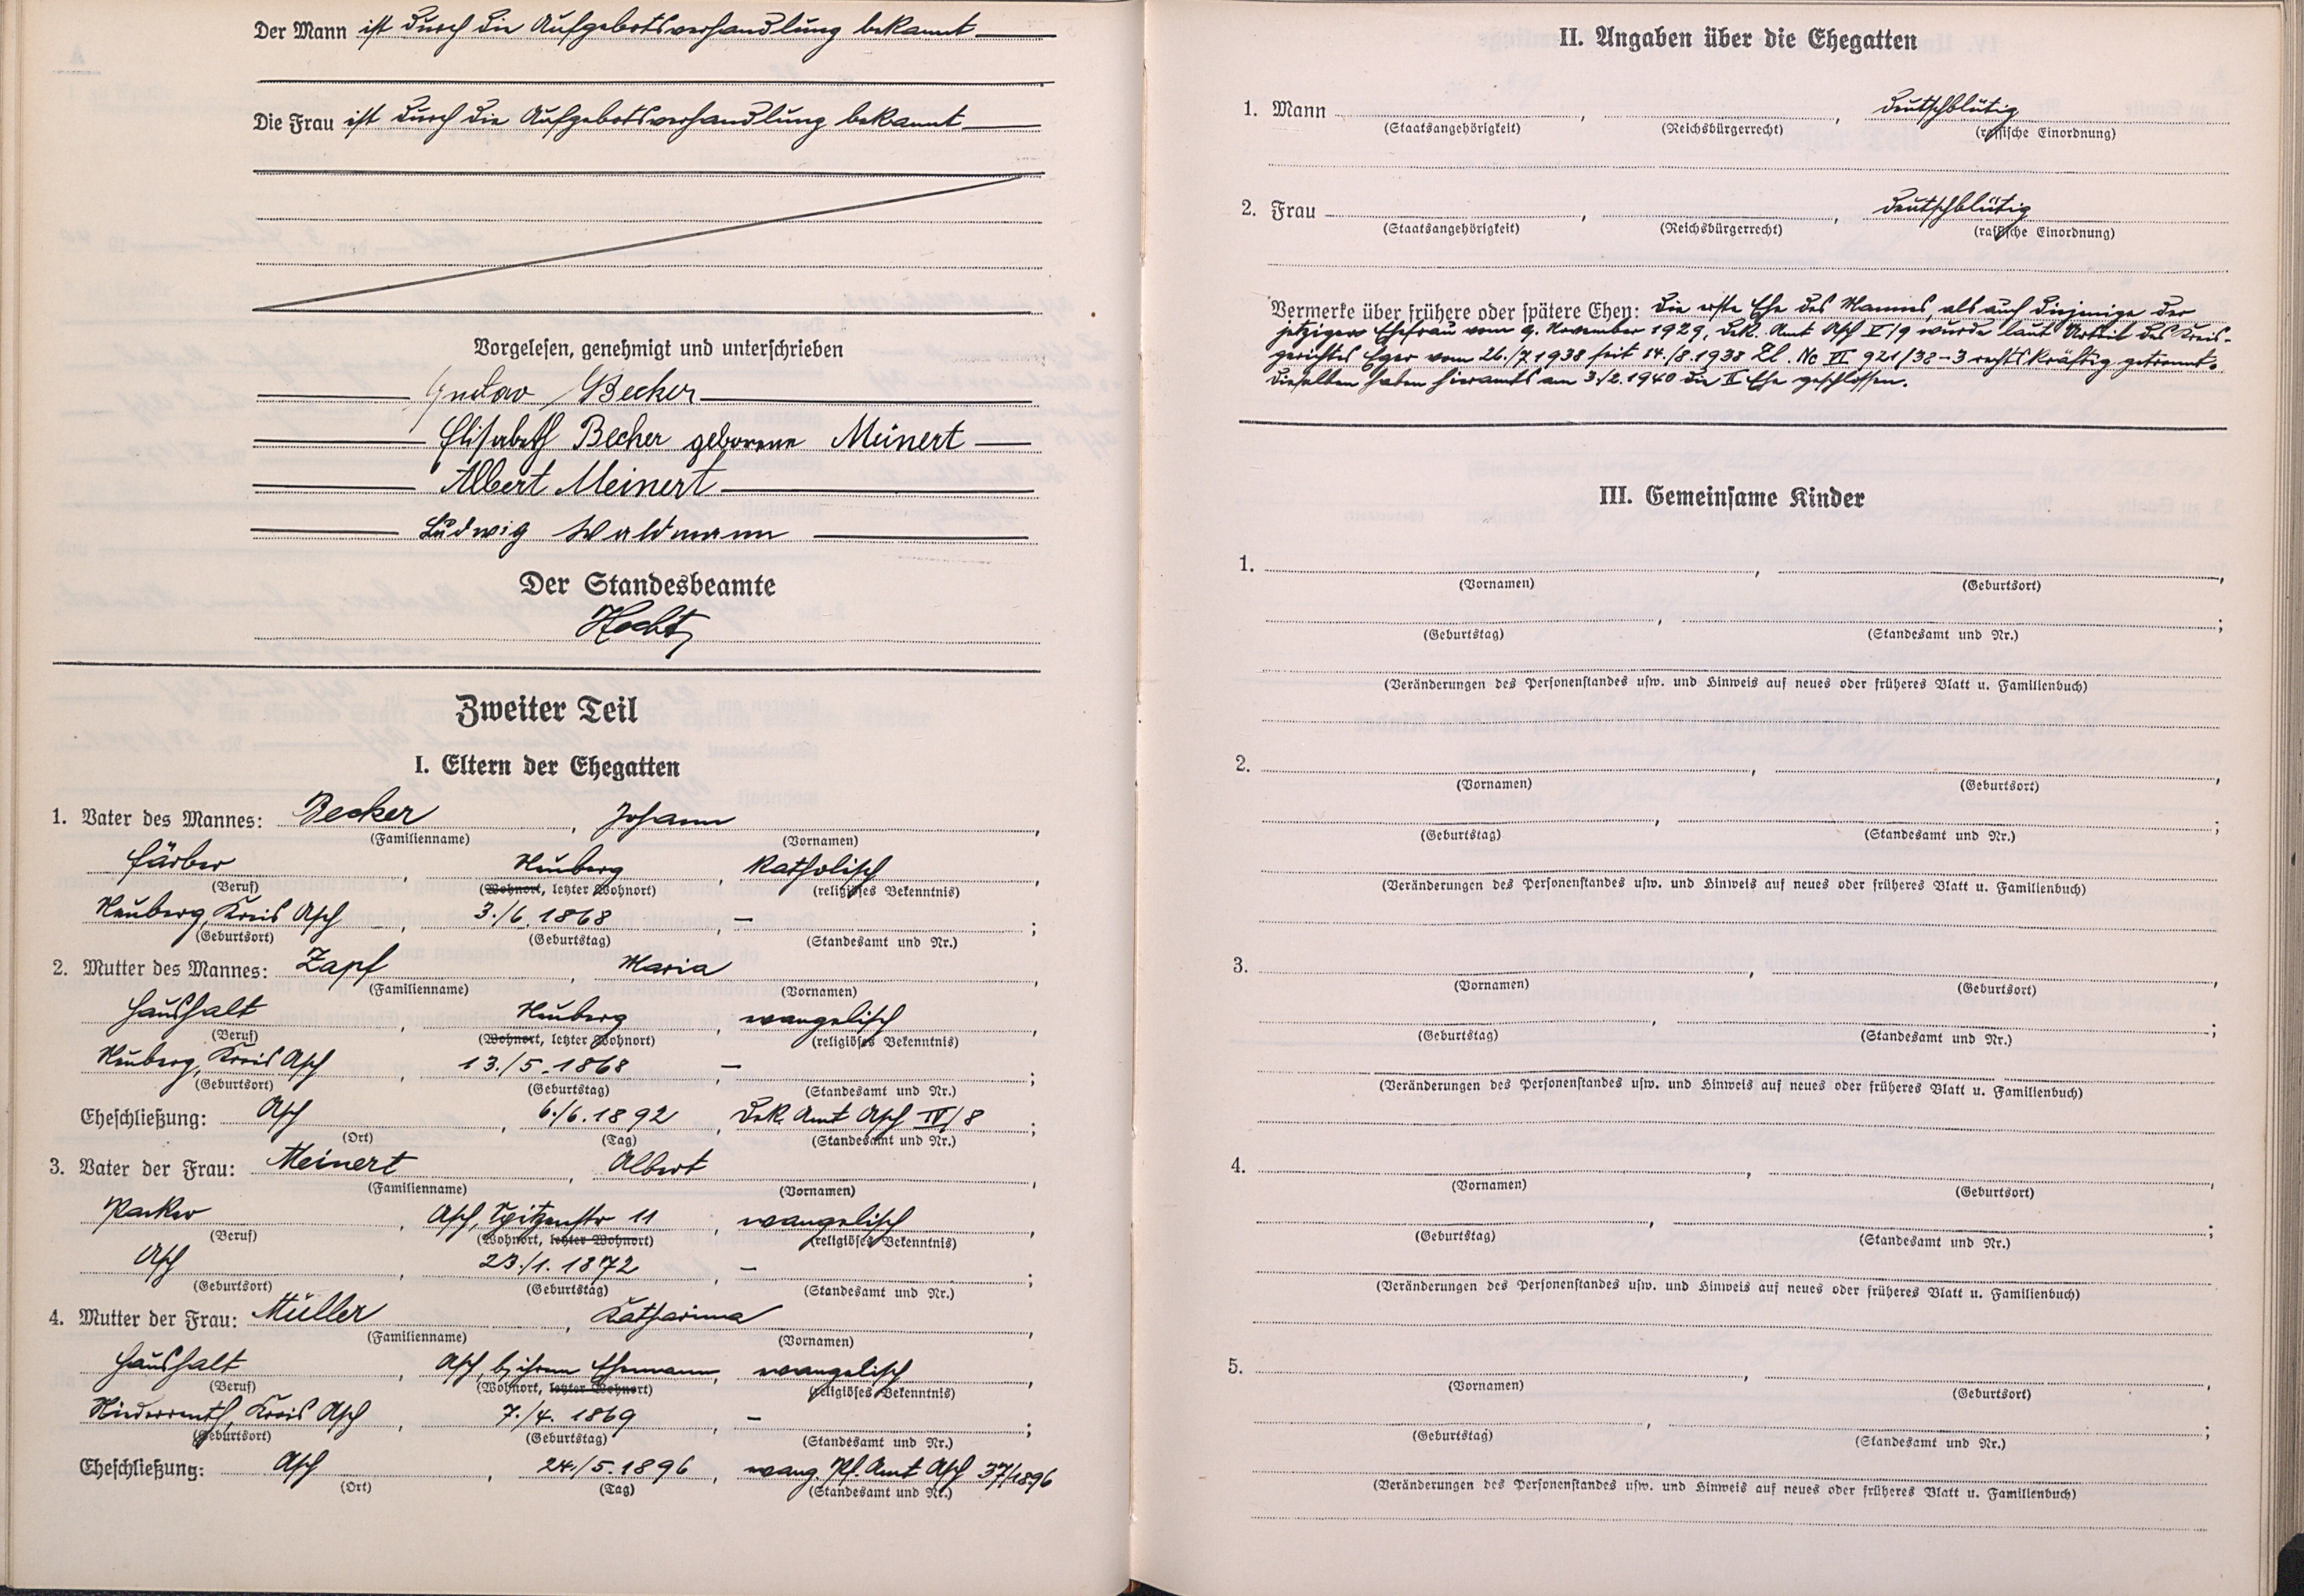 Der Mann ist durch die Aufgebotsverhandlung bekannt
Die Frau ist durch die Aufgebotsverhandlung bekannt
Vorgelesen, genehmigt und unterschrieben
Gustav Becker
Elisabeth Becher geborene Meinert
Albert Meinert
Ludwig Waldmann
Der Standesbeamte
Hecht
Zweiter Teil
I. Eltern der Ehegatten
1. Vater des Mannes: Becker, Johann,
(Familienname) (Vornamen)
Färber, Neuberg, katholisch,
(Beruf) (Wohnort, letzter Wohnort) (religiöses Bekenntnis)
Neuberg, Kreis Asch, 3./6.1868, – ;
(Geburtsort) (Geburtstag) (Standesamt und Nr.)
2. Mutter des Mannes: Zapf, Maria,
(Familienname) (Vornamen)
Haushalt, Neuberg, evangelisch,
(Beruf) (Wohnort, letzter Wohnort) (religiöses Bekenntnis)
Neuberg, Kreis Asch, 13./5.1868, – ;
(Geburtsort) (Geburtstag) (Standesamt und Nr.)
Eheschließung: Asch, 6./6.1892, Dek. Amt Asch IV/8;
(Ort) (Tag) (Standesamt und Nr.)
3. Vater der Frau: Meinert, Albert,
(Familienname) (Vornamen)
Packer, Asch, Spitzenstr 11, evangelisch,
(Beruf) (Wohnort, letzter Wohnort) (religiöses Bekenntnis)
Asch, 23./1.1872, – ;
(Geburtsort) (Geburtstag) (Standesamt und Nr.)
4. Mutter der Frau: Müller, Katharina,
(Familienname) (Vornamen)
Haushalt, Asch, bei ihrem Ehemann, evangelisch,
(Beruf) (Wohnort, letzter Wohnort) (religiöses Bekenntnis)
Niederreuth, Kreis Asch, 7./4.1869, – ;
(Geburtsort) (Geburtstag) (Standesamt und Nr.)
Eheschließung: Asch, 24./5.1896, evang. Pf. Amt Asch 37/1896
(Ort) (Tag) (Standesamt und Nr.)
II. Angaben über die Ehegatten
1. Mann , , deutschblütig
(Staatsangehörigkeit) (Reichsbürgerrecht) (rassische Einordnung)
2. Frau , , deutschblütig
(Staatsangehörigkeit) (Reichsbürgerrecht) (rassische Einordnung)
Vermerke über frühere oder spätere Ehen: Die erste Ehe des Mannes, als auch diejenige der
jetzigen Ehefrau vom 9. November 1929, Dek. Amt Asch V/9 wurde laut Urteil des Kreis-
gerichtes Eger vom 26./7.1938 seit 14./8.1938 Zl. No VI 921/38-3 rechtskräftig getrennt.
Dieselben haben hieramts am 3./2.1940 die II Ehe geschlossen.
III. Gemeinsame Kinder
1. , ,
(Vornamen) (Geburtsort)
, ;
(Geburtstag) (Standesamt und Nr.)
(Veränderungen des Personenstandes usw. und Hinweis auf neues oder früheres Blatt u. Familienbuch)
2. , ,
(Vornamen) (Geburtsort)
, ;
(Geburtstag) (Standesamt und Nr.)
(Veränderungen des Personenstandes usw. und Hinweis auf neues oder früheres Blatt u. Familienbuch)
3. , ,
(Vornamen) (Geburtsort)
, ;
(Geburtstag) (Standesamt und Nr.)
(Veränderungen des Personenstandes usw. und Hinweis auf neues oder früheres Blatt u. Familienbuch)
4. , ,
(Vornamen) (Geburtsort)
, ;
(Geburtstag) (Standesamt und Nr.)
(Veränderungen des Personenstandes usw. und Hinweis auf neues oder früheres Blatt u. Familienbuch)
5. , ,
(Vornamen) (Geburtsort)
, ;
(Geburtstag) (Standesamt und Nr.)
(Veränderungen des Personenstandes usw. und Hinweis auf neues oder früheres Blatt u. Familienbuch)